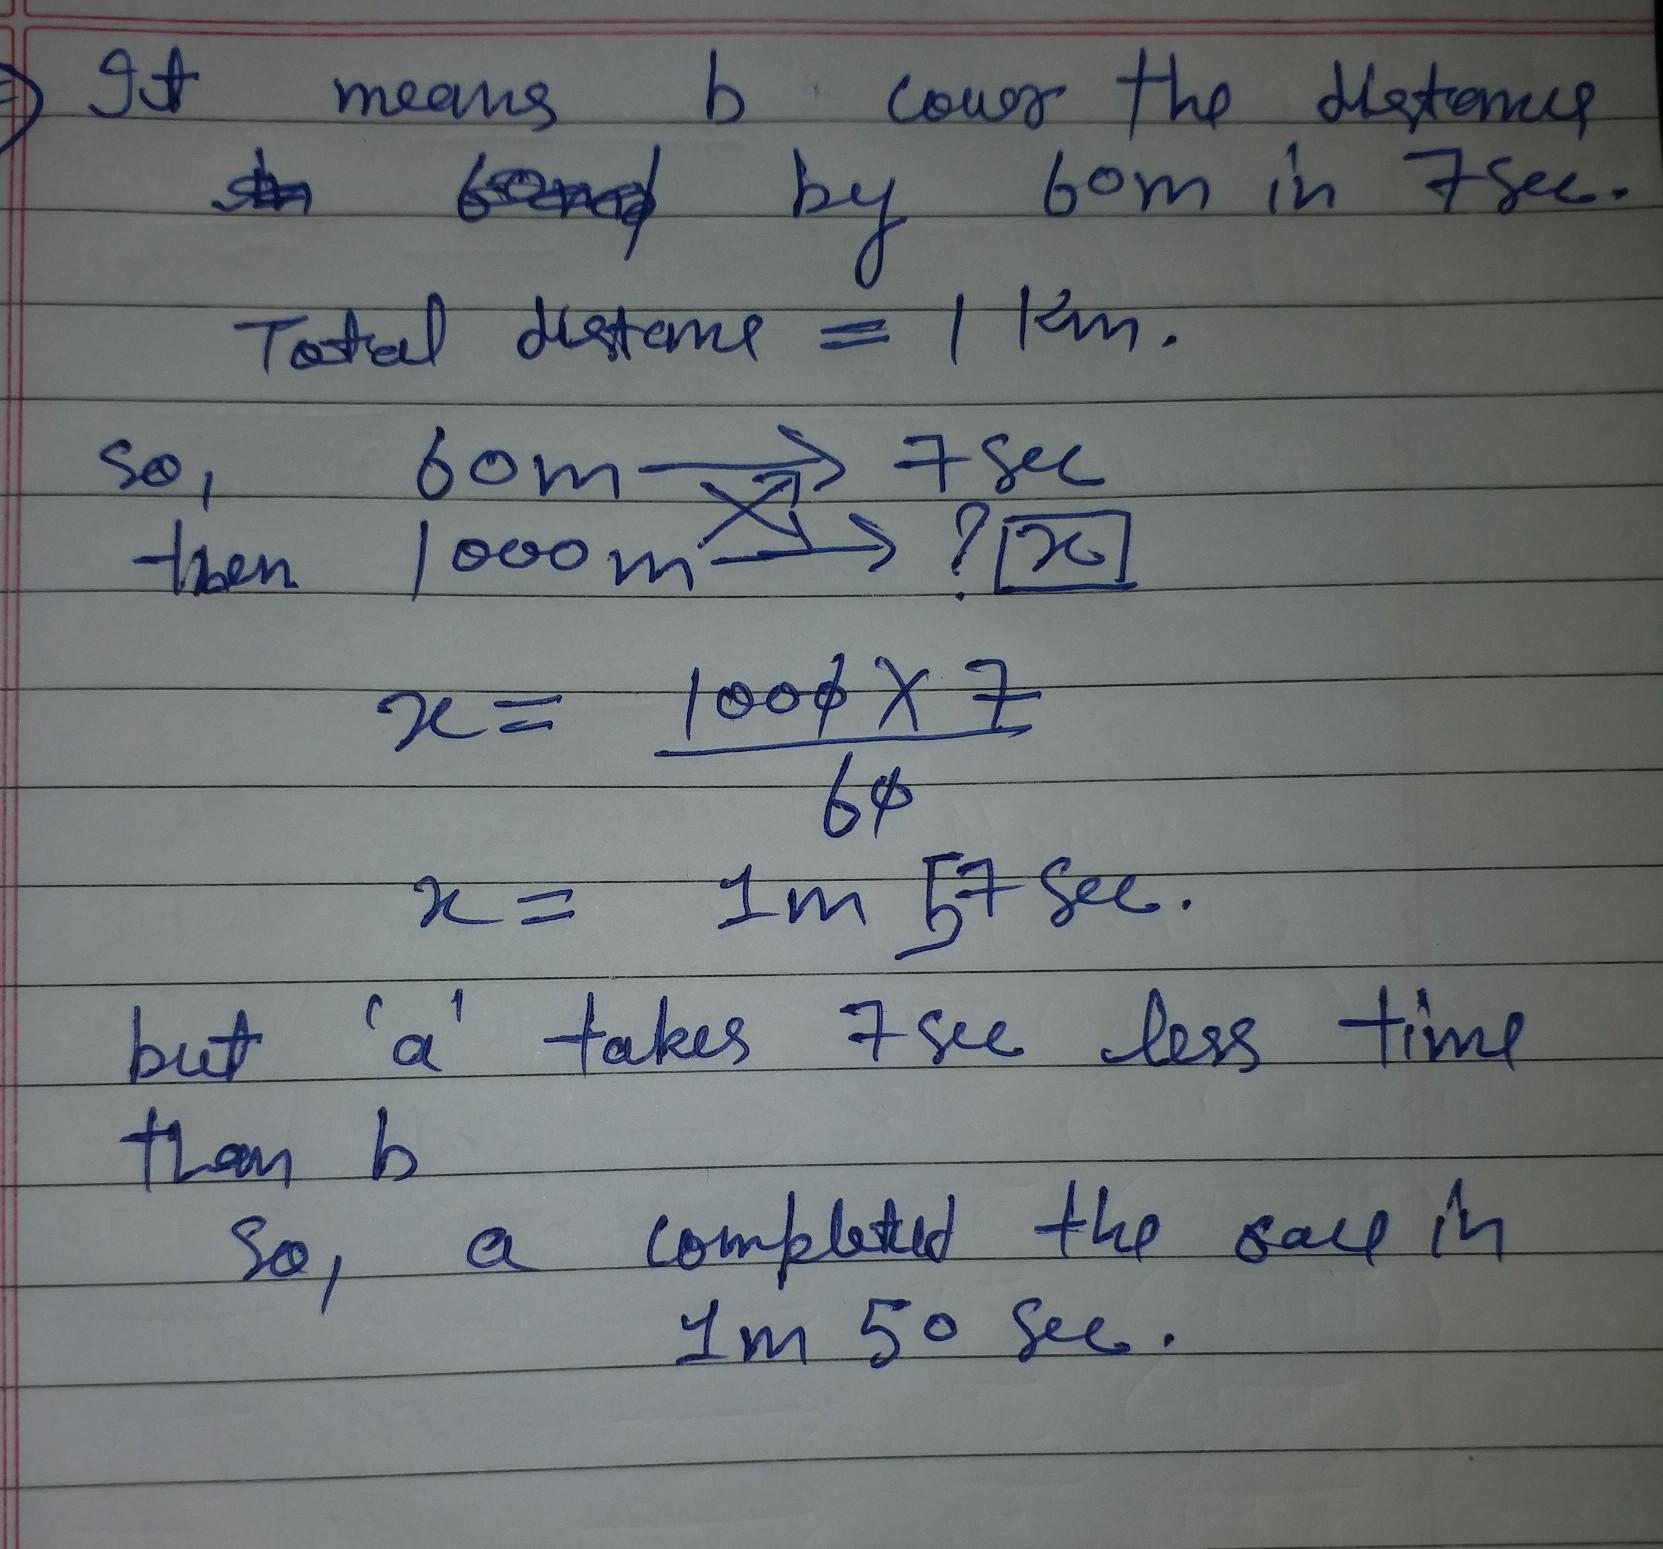 It means b cover the distance
by 60m in 7sec.
Total distance = 1 Km.
so, 60m → 7 sec
then 1000m → ? x
x = 1000 X 7
60
x = 1m 57 sec.
but 'a' takes 7 sec less time
than b
So, a completed the race in
1m 50 sec.